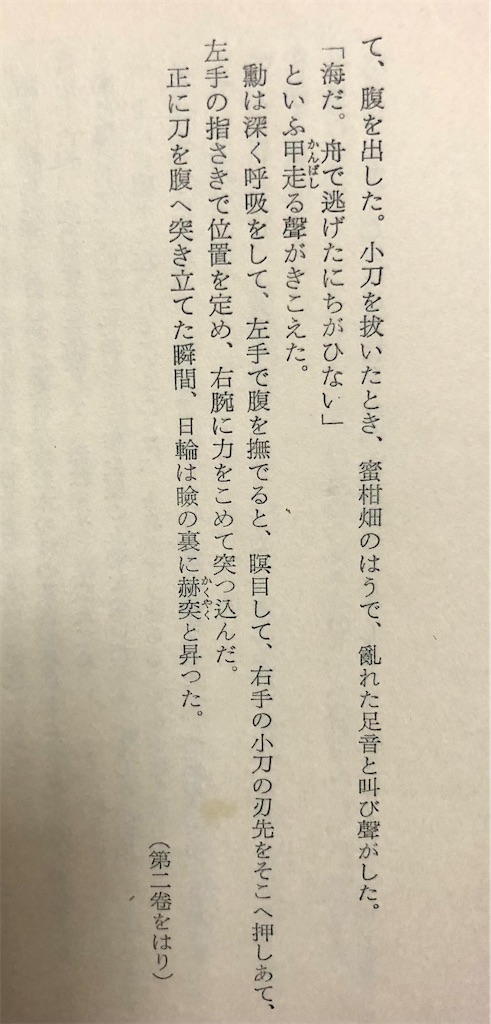 て、腹を出した。小刀を拔いたとき、蜜柑畑のはうで、亂れた足音と叫び聲がした。
「海だ。舟で逃げたにちがひない」
といふ甲走る聲がきこえた。
かんばし
勳は深く呼吸をして、左手で腹を撫でると、瞑目して、右手の小刀の刃先をそこへ押しあて、
左手の指さきで位置を定め、右腕に力をこめて突つ込んだ。
正に刀を腹へ突き立てた瞬間、日輪は瞼の裏に赫奕と昇つた。
かくやく
(第二卷をはり)